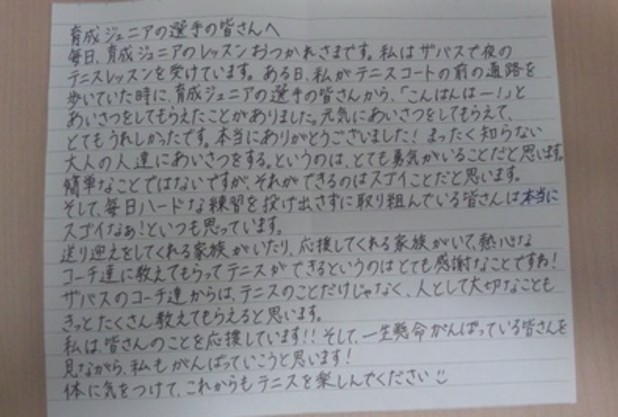 育成ジュニアの選手の皆さんへ
毎日、育成ジュニアのレッスンおつかれさまです。私はザバスで夜の
テニスレッスンを受けています。ある日、私がテニスコートの前の通路を
歩いていた時に、育成ジュニアの選手の皆さんから、「こんばんはー!」と
あいさつをしてもらえたことがありました。元気にあいさつをしてもらえて、
とてもうれしかったです。本当にありがとうございました!まったく知らない
大人の人達にあいさつをする。というのは、とても勇気がいることだと思います。
簡単なことではないですが、それができるのはスゴイことだと思います。
そして、毎日ハードな練習を投げ出さずに取り組んでいる皆さんは本当に
スゴイなぁ!といつも思っています。
送り迎えをしてくれる家族がいたり、応援してくれる家族がいて、熱心な
コーチ達に教えてもらってテニスができるというのはとても感謝なことですね!
ザバスのコーチ達からは、テニスのことだけじゃなく、人として大切なことも
きっとたくさん教えてもらえると思います。
私は、皆さんのことを応援しています!!そして、一生懸命がんばっている皆さんを
見ながら、私もがんばっていこうと思います!
体に気をつけて、これからもテニスを楽しんでください!!